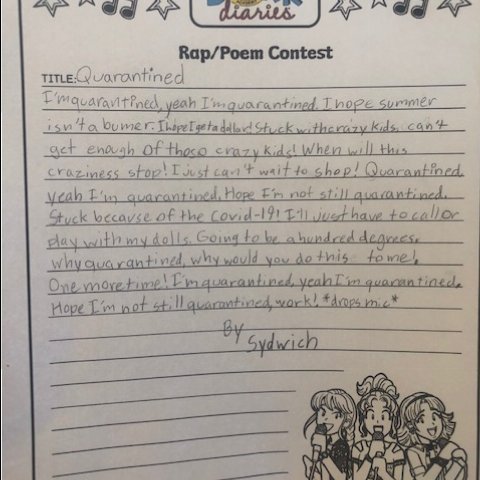 DORK
diaries
Rap/Poem Contest
TITLE: Quarantined
I'm quarantined, yeah I'm quarantined. I hope summer
isn't a bumer. I hope I get a dollar! Stuck with crazy kids. can't
get enough of thoso crazy kids! When will this
craziness stop! I just can't wait to shop! Quarantined
yeah I'm quarantined. Hope I'm not still quarantined.
Stuck because of the covid-19! I'll just have to call or
play with my dolls. Going to be a hundred degrees.
why quarantined, why would you do this to me!
One more time! I'm quarantined, yeah I'm quarantined.
Hope I'm not still quarantined, work! *drops mic*
By
Sydwich